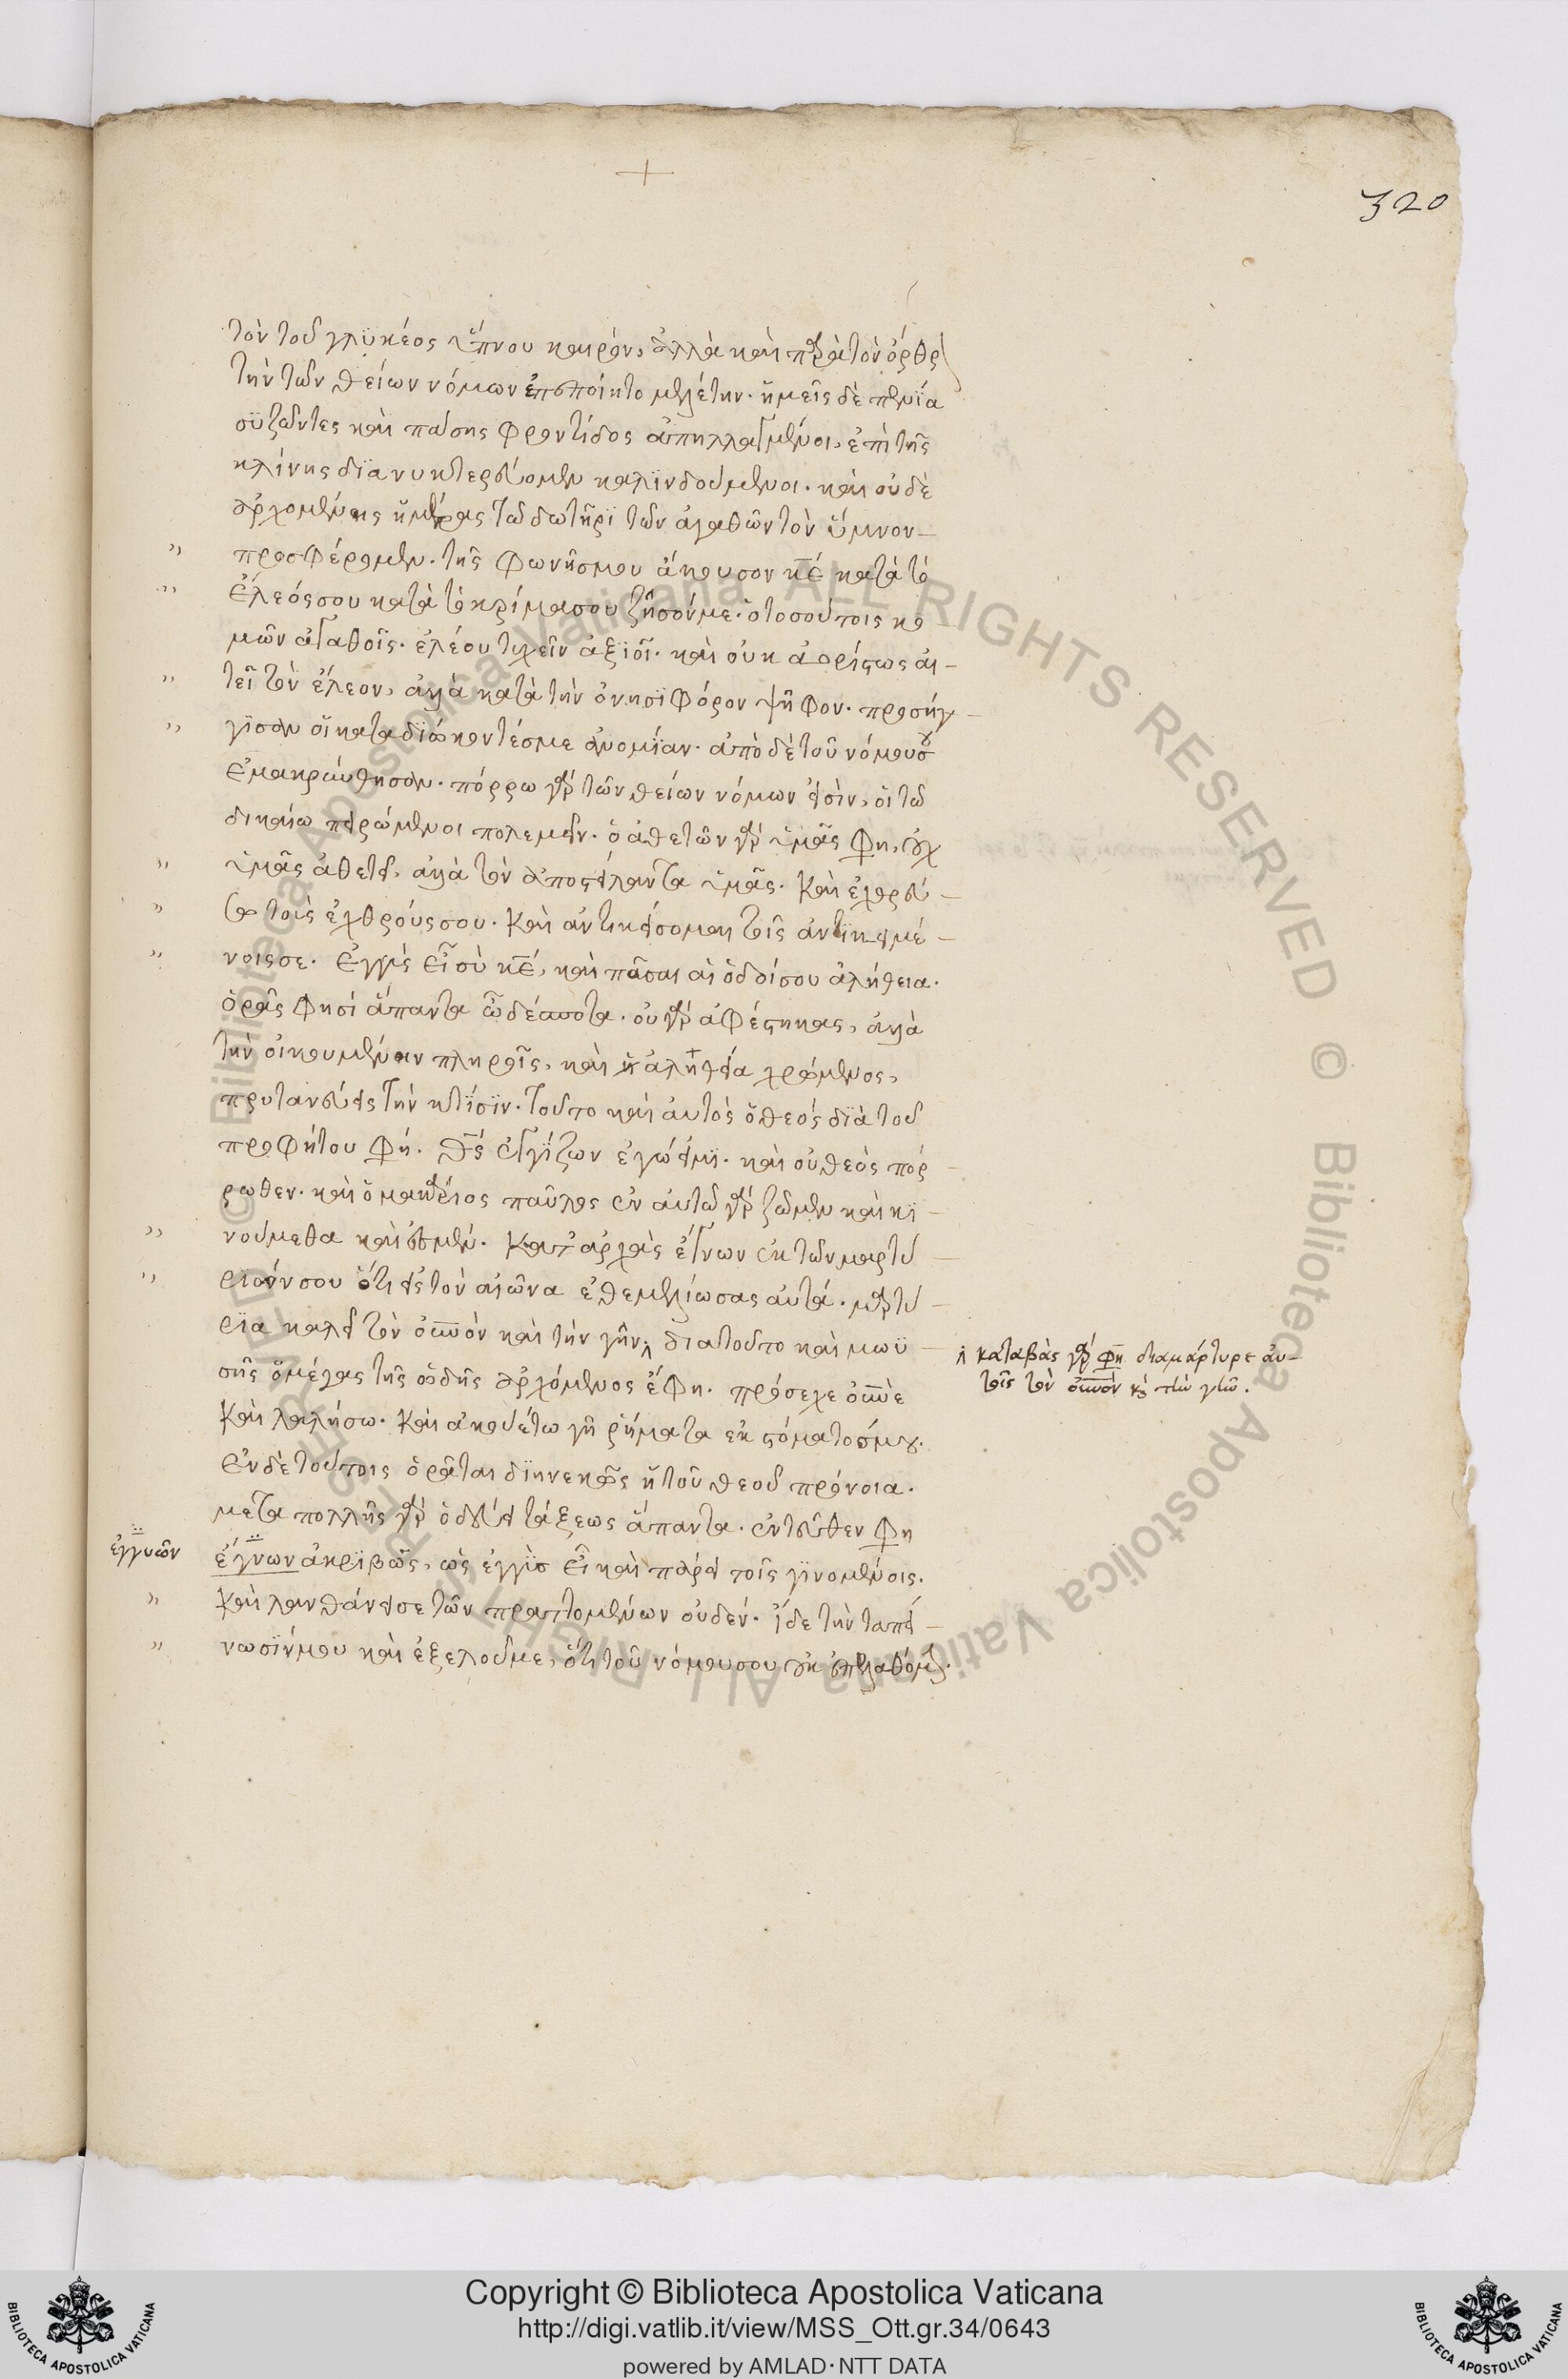 320
τὸν τοῦ γλυκέος ὕπνου καιρόν, ἀλλὰ καὶ παρὰ τὸν ὄρθρ
τὴν τῶν θείων νόμων ἐπεποίητο μελέτην. ἡμεῖς δὲ πενία
συζῶντες καὶ πάσης φροντίδος ἀπηλλαγμένοι, ἐπὶ τῆς
κλίνης διανυκτερεύομεν καλινδούμενοι. καὶ οὐδὲ
ἀρχομένης ἡμέρας τῶ δωτῆρι τῶν ἀγαθῶν τὸν ὕμνον
προσφέρομεν. τῆς φωνῆς μου ἄκουσον κε κατὰ τὸ
ἔλεός σου κατὰ τὸ κρίμα σου ζῆσόν με. ὁ τοσούτοις κο
μῶν ἀγαθοῖς. ἐλέου τυχεῖν ἀξιοῖ. καὶ οὐκ ἀορίστως αἰ
τεῖ τὸν ἔλεον, ἀλλὰ κατὰ τὴν ὀνησιφόρον ψῆφον. προσήγ
γισαν οἱ καταδιώκοντές με ἀνομίαν. ἀπὸ δὲ τοῦ νόμου σου
ἐμακρύνθησαν. πόρρω γὰρ τῶν θείων νόμων εἰσὶν, οἱ τῶ
δικαίω πειρώμενοι πολεμεῖν. ὁ ἀθετῶν γὰρ ὑμᾶς φη, οὐχ
ὑμᾶς ἀθετεῖ, ἀλλὰ τὸν ἀποστείλαντα ὑμᾶς. καὶ ἐχθρεύ
σω τοῖς ἐχθροῖς σου. καὶ ἀντικείσομαι τοῖς ἀντικειμέ
νοις σε. ἐγγὺς εἶ σὺ κε, καὶ πᾶσαι αἱ ὁδοί σου ἀλήθεια.
ὁρᾶς φησὶ ἅπαντα ὦ δέσποτα. οὐ γὰρ ἀφέστηκας, ἀλλὰ
τὴν οἰκουμένην πληροῖς, καὶ ἀληθεία χρώμενος,
πρυτανεύεις τὴν κτίσιν. τοῦτο καὶ αὐτὸς ὁ θεὸς διὰ τοῦ
προφήτου φη. θς ἐγγίζων ἐγώ εἰμι. καὶ οὐ θεὸς πόρ
ρωθεν. καὶ ὁ μακάριος παῦλος ἐν αὐτῶ γὰρ ζῶμεν καὶ κι
νούμεθα καὶ ἐσμέν. κατ' ἀρχὰς ἔγνων ἐκ τῶν μαρτυ
ριῶν σου ὅτι εἰς τὸν αἰῶνα ἐθεμελίωσας αὐτά. μαρτύ
ρια καλεῖ τὸν οὐνον καὶ τὴν γῆν, διατοῦτο καὶ μωϋ
σῆς ὁ μέγας τῆς ὠδῆς ἀρχόμενος ἔφη. πρόσεχε οὐνὲ
καὶ λαλήσω. καὶ ἀκουέτω γῆ ῥήματα ἐκ στόματός μου.
ἐν δὲ τούτοις ὁρᾶται διηνεκῶς ἡ τοῦ θεοῦ πρόνοια.
μετὰ πολλῆς γὰρ ὁδεύει τάξεως ἅπαντα. ἐντεῦθεν φη
ἔγνων ἀκριβῶς, ὡς ἐγγὺς εἶ καὶ πάρει τοῖς γινομένοις.
καὶ λανθάνει σε τῶν πραττομένων οὐδέν. ἴδε τὴν ταπεί
νωσίν μου καὶ ἐξελοῦ με, ὅτι τοῦ νόμου σου οὐκ ἐπελαθόμ.
καταβὰς γὰρ φη διαμάρτυρε αὐ
τοῖς τὸν οὐνὸν καὶ τὴν γῆν.
Copyright © Biblioteca Apostolica Vaticana
http://digi.vatlib.it/view/MSS_Ott.gr.34/0643
powered by AMLAD·NTT DATA